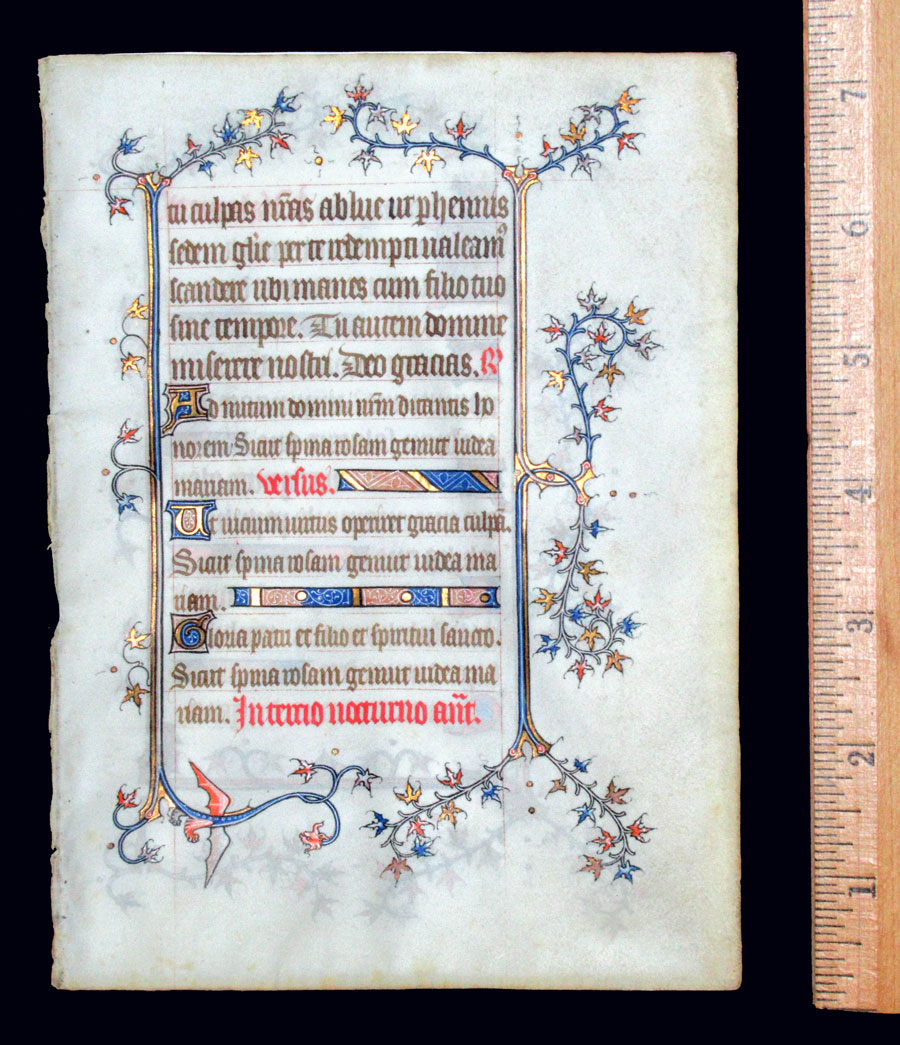 tu culpas nr̄as ablue ut p̱hennis
sedem gl̄ie per te redempti ualeamꝰ
scandere ubi manes cum filio tuo
sine tempore. Tu autem domine
miserere nostri. Deo gracias. R
Ad nutum domini nr̄m ditantis ho
norem Sicut spina rosam genuit iudea
mariam. versus.
Ut uicium uirtus operiret gracia culpā.
Sicut spina rosam genuit iudea ma
riam.
Gloria patri et filio et spiritui sancto.
Sicut spina rosam genuit iudea ma
riam. In tercio nocturno an̄t.
7
6
5
4
3
2
1